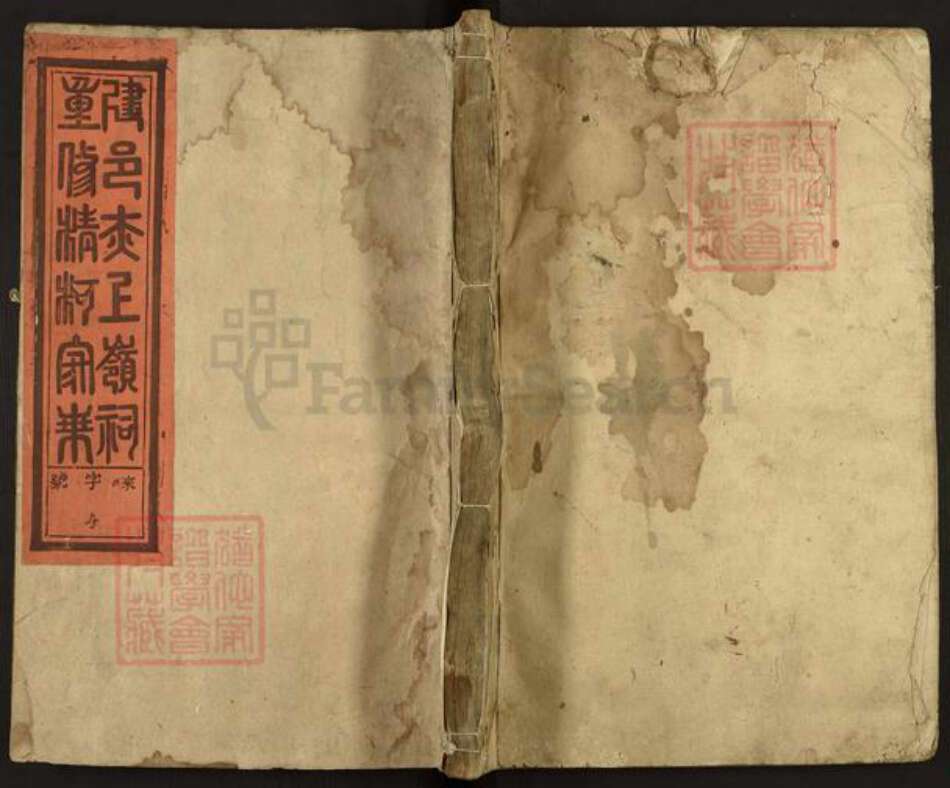 建邑夾上嶺祠
重修清河家乘
來字號
猶他家
譜學會
藏
猶他家
譜學會
藏
FamilySearch